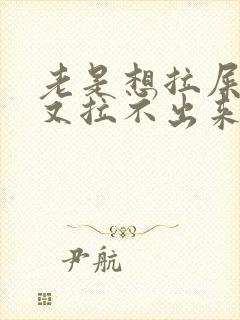 老是想拉屎
又拉不出来
尹航